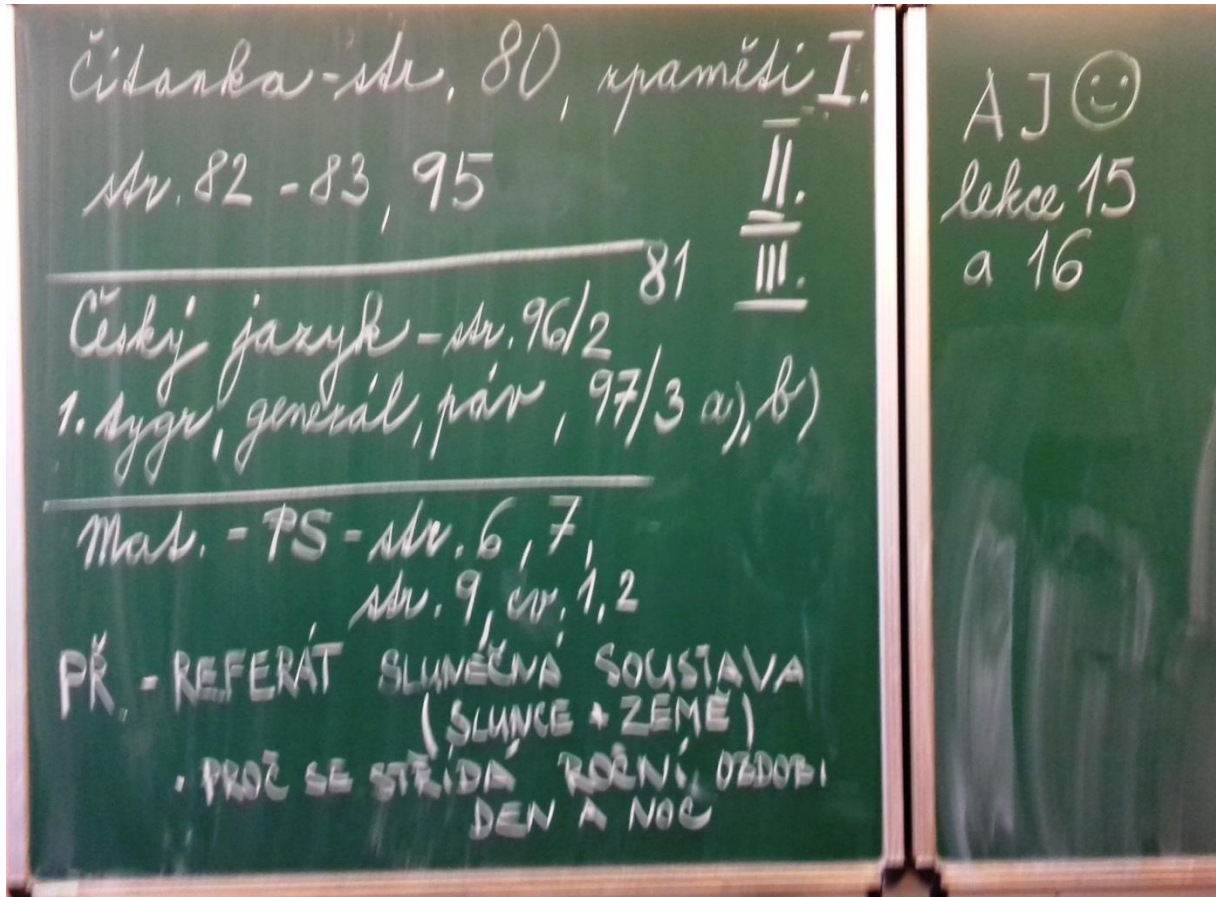 Čítanka - str. 80, zpaměti I.
str. 82 - 83, 95 II.
81 III.
Český jazyk - str. 96/2
1. tygr, generál, páv, 97/3 a), b)
Mat. - PS - str. 6, 7,
str. 9, cv. 1, 2
PŘ. - REFERÁT SLUNEČNÁ SOUSTAVA
(SLUNCE + ZEMĚ)
• PROČ SE STŘÍDÁ ROČNÍ OZDOBI
DEN A NOC
AJ
lekce 15
a 16